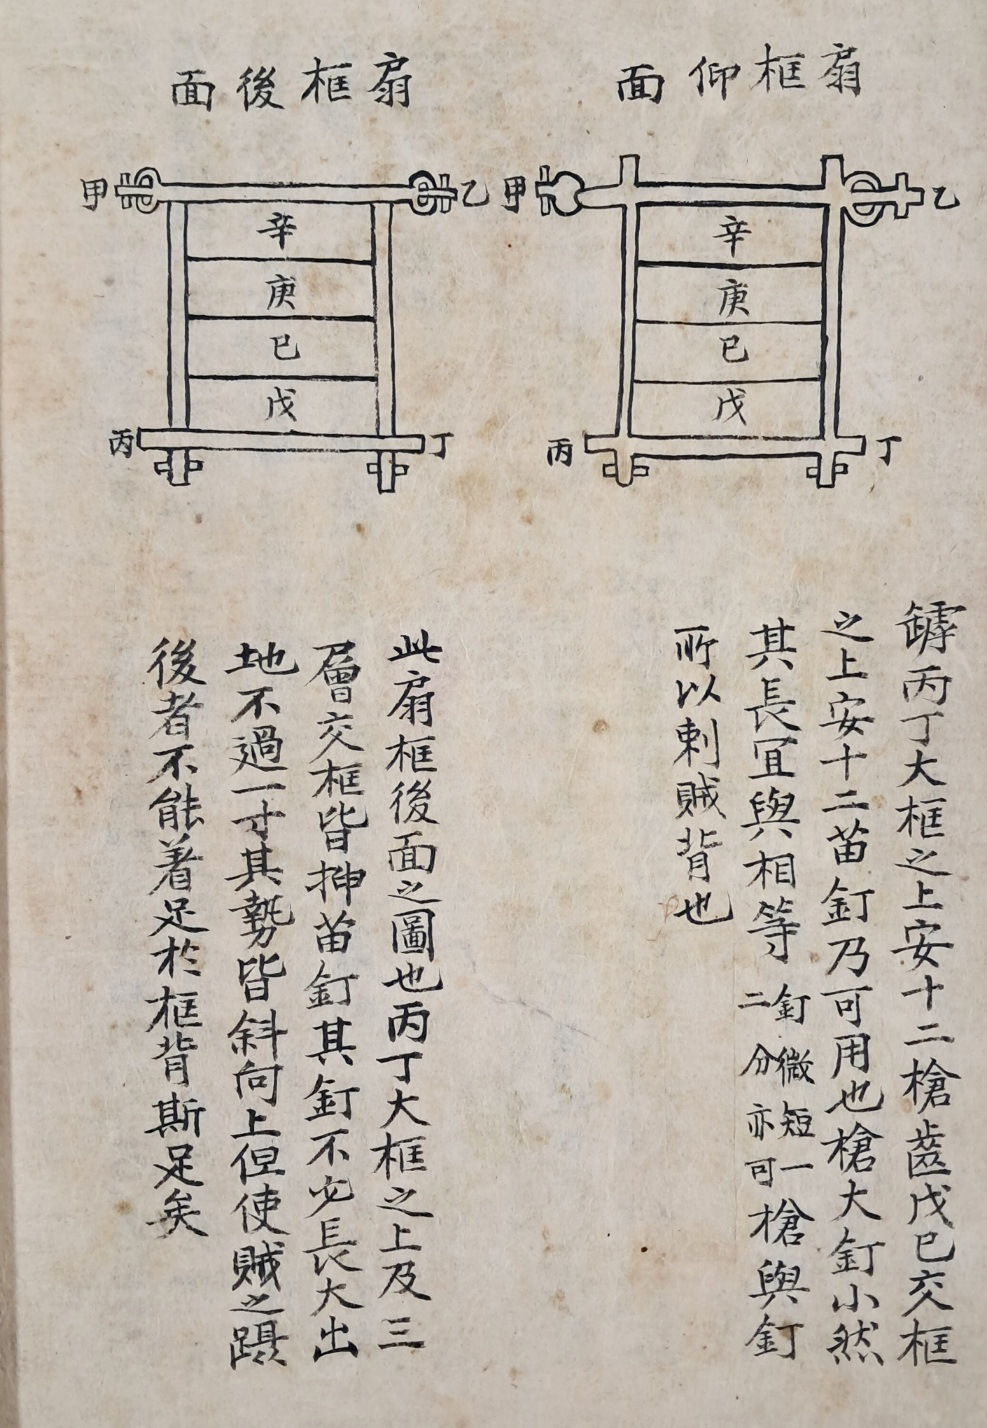 扇框仰面
乙
甲
辛
庚
巳
戊
丁
丙
鏬丙丁大框之上安十二槍齒戊巳交框
之上安十二苗釘乃可用也槍大釘小然
其長宜與相等釘微短一二分亦可槍與釘
所以刺賊背也
扇框後面
乙
甲
辛
庚
巳
戊
丁
丙
此扇框後面之圖也丙丁大框之上及三
層交框皆抻苗釘其釘不必長大出
地不過一寸其勢皆斜向上但使賊之躡
後者不能着足於框背斯足矣